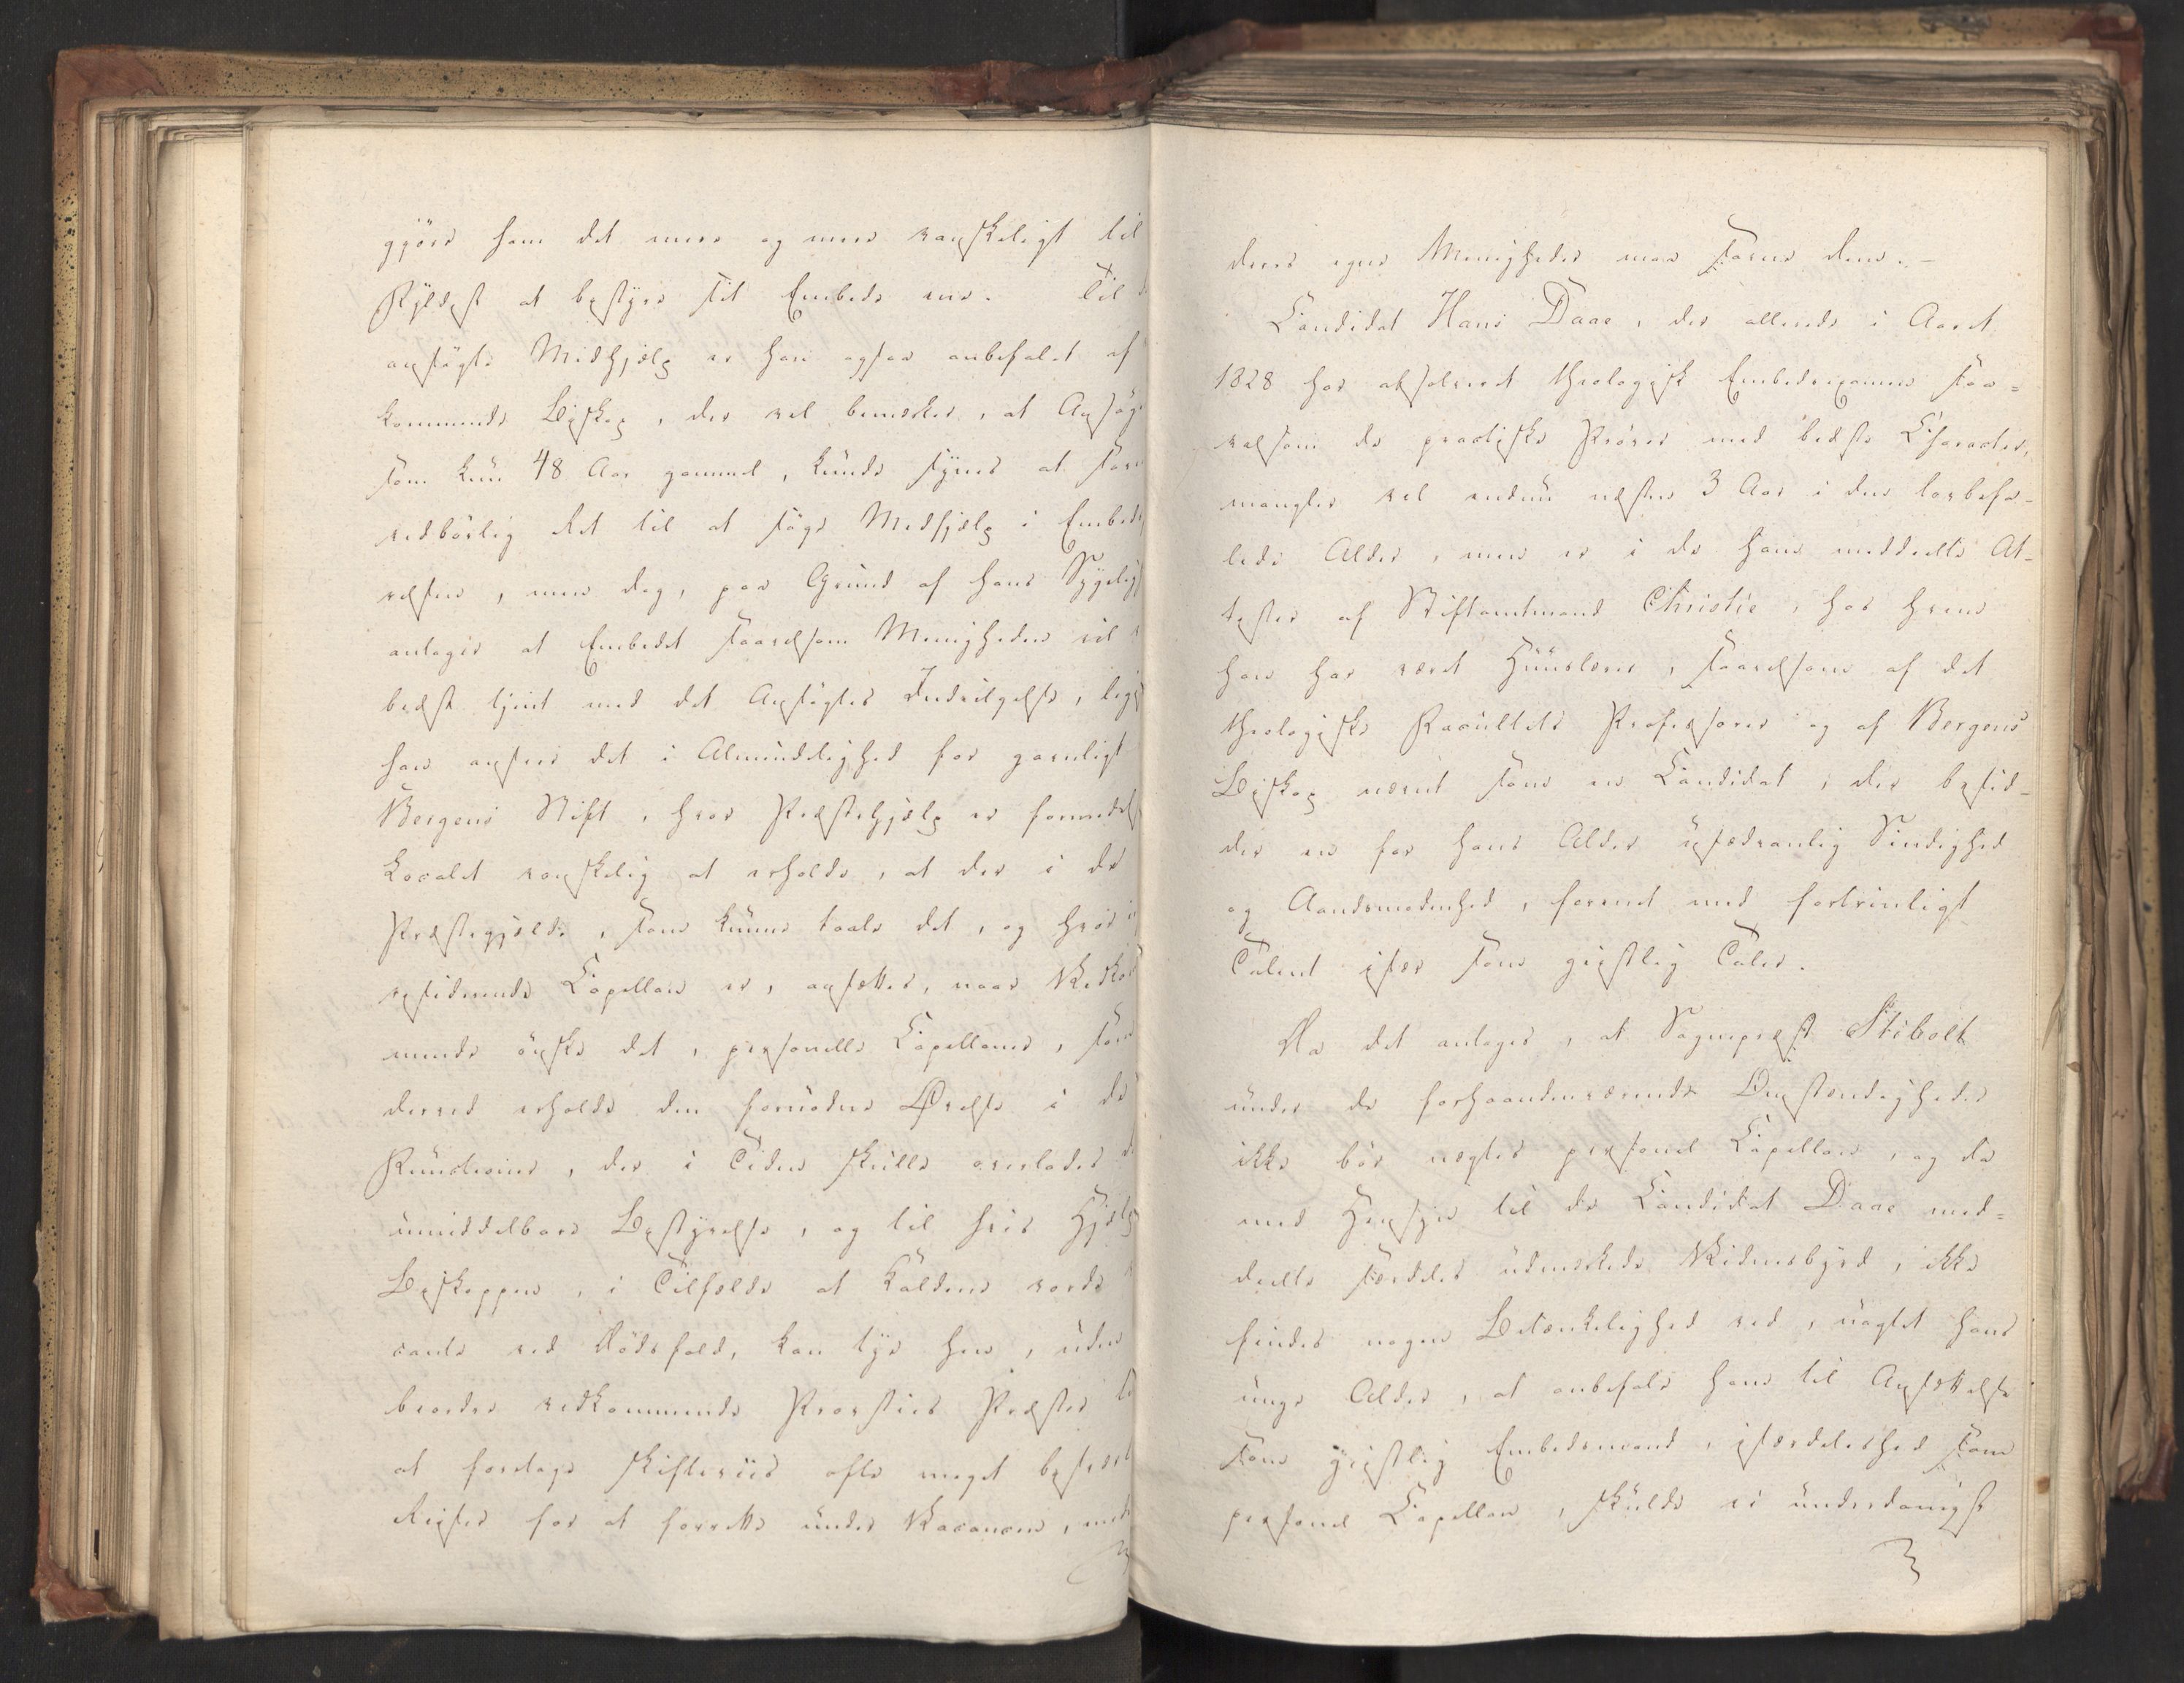 gjöre ham det mere og mere vanskeligt til
Fyldest at bestyre sit Embede ene. Til
ansögte Medhjelp er han ogsaa anbefalet af
kommende Biskop, der vel bemærker, at Ansög
som kun 48 Aar gammel, kunde synes at
vedbörlig Ret til at söge Medhjelp i Embeds
relsen, men dog, paa Grund af hans Sygelig
antager at Embedet saavelsom Menigheden vil
bedst tjent med det Ansögtes Indvilgelse, lige
han anseer det i Almindelighed for gavnligt
Bergens Stift, hvor Præstehjelp er formedelst
Localet vanskelig at erholde, at der i de
Præstegjelde, som kunne taale det, og hvor
residerende Capellan er, ansættes, naar Vedkom
mende önske det, personelle Capellaner, som
derved erholde den fornödne Övelse i de
Functioner, der i Tiden skulle overlades
umiddelbare Bestyrelse, og til hvis Hjelp
Biskoppen, i Tilfælde at Kaldene vorde
cante ved Dödsfald, kan tye hen, uden
beordre vedkommende Provsties Præster
at foretage skifteviis ofte meget besvær
Reiser for at forrette under Vacancen,
deres egne Menigheder maa savne dem.-
Candidat Hans Daae, der allerede i Aaret
1828 har absolveret theologisk Embedsexamen saa=
velsom de practiske Pröver med bedste Charakter,
mangler vel endnu næsten 3 Aar i den lovbefa-
lede Alder, men er i de ham meddeelte At-
tester af Stiftamtmand Christie, hos hvem
han har været Huuslærer, saavelsom af det
theologiske Facultets Professorer og af Bergens
Biskop nævnt som en Candidat, der besid-
der en for hans Alder usædvanlig Sindighed
og Aandsmodenhed, forenet med fortrinligt
Talent især som geistlig Taler.
Da det antages, at Sognepræst Stibolt
under de forhaandenværende Omstændigheder
ikke bör negtes personel Capellan, og da
med Hensyn til de Candidat Daae med=
deelte særdeles udmærkede Vidnesbyrd, ikke
findes nogen Betænkelighed ved, uagtet hans
unge Alder, at anbefale ham til Ansættelse
som geistlig Embedsmand, isærdeleshed som
personel Capellan, skulde vi underdanigst